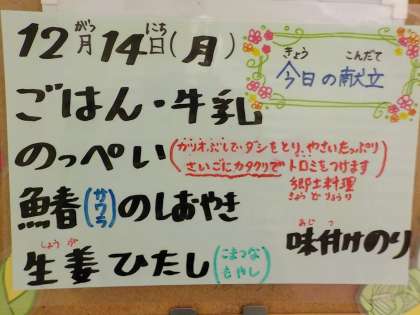 12月14日(月)
がつ にち
きょう こんだて
今日の献立
ごはん・牛乳
のっぺい(カツオぶしでダシをとり、やさいたっぷり
さいごにカタクリでトロミをつけます
郷土料理
きょうどりょうり
鰆(サワラ)のしおやき
味付けのり
あじつ
生姜ひたし(こまつな
もやし)
しょうが